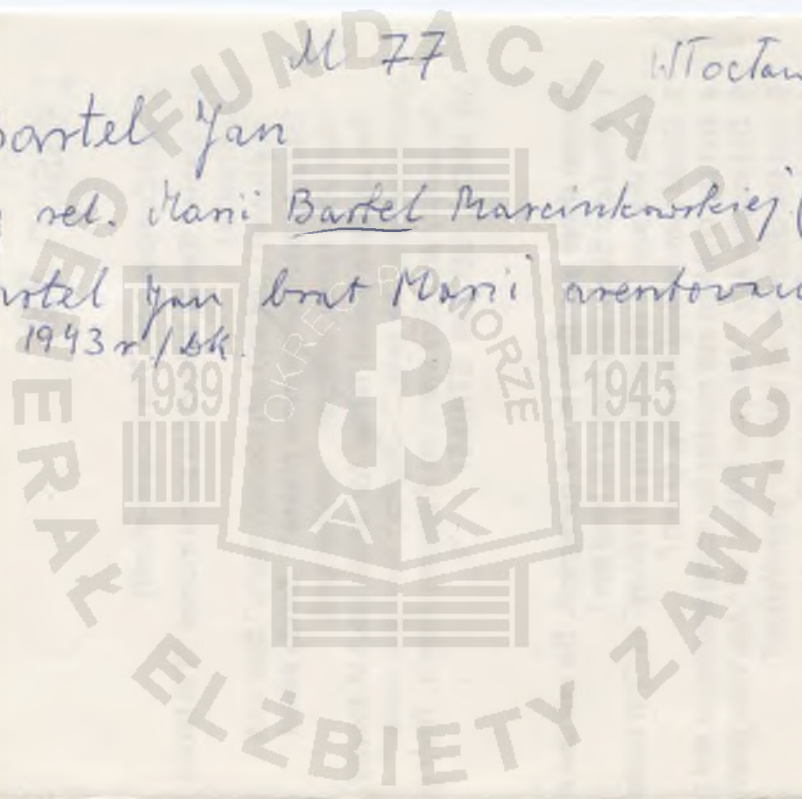 M 77 Włocław
Bartel Jan
rel. Marii Bartel Marcinkowskiej (
artel Jan brat Marii aresztowan
1943 r / DK.
FUNDACJA GENERAŁ ELŻBIETY ZAWACK
OKRĘG POMORZE
1939 1945
A K